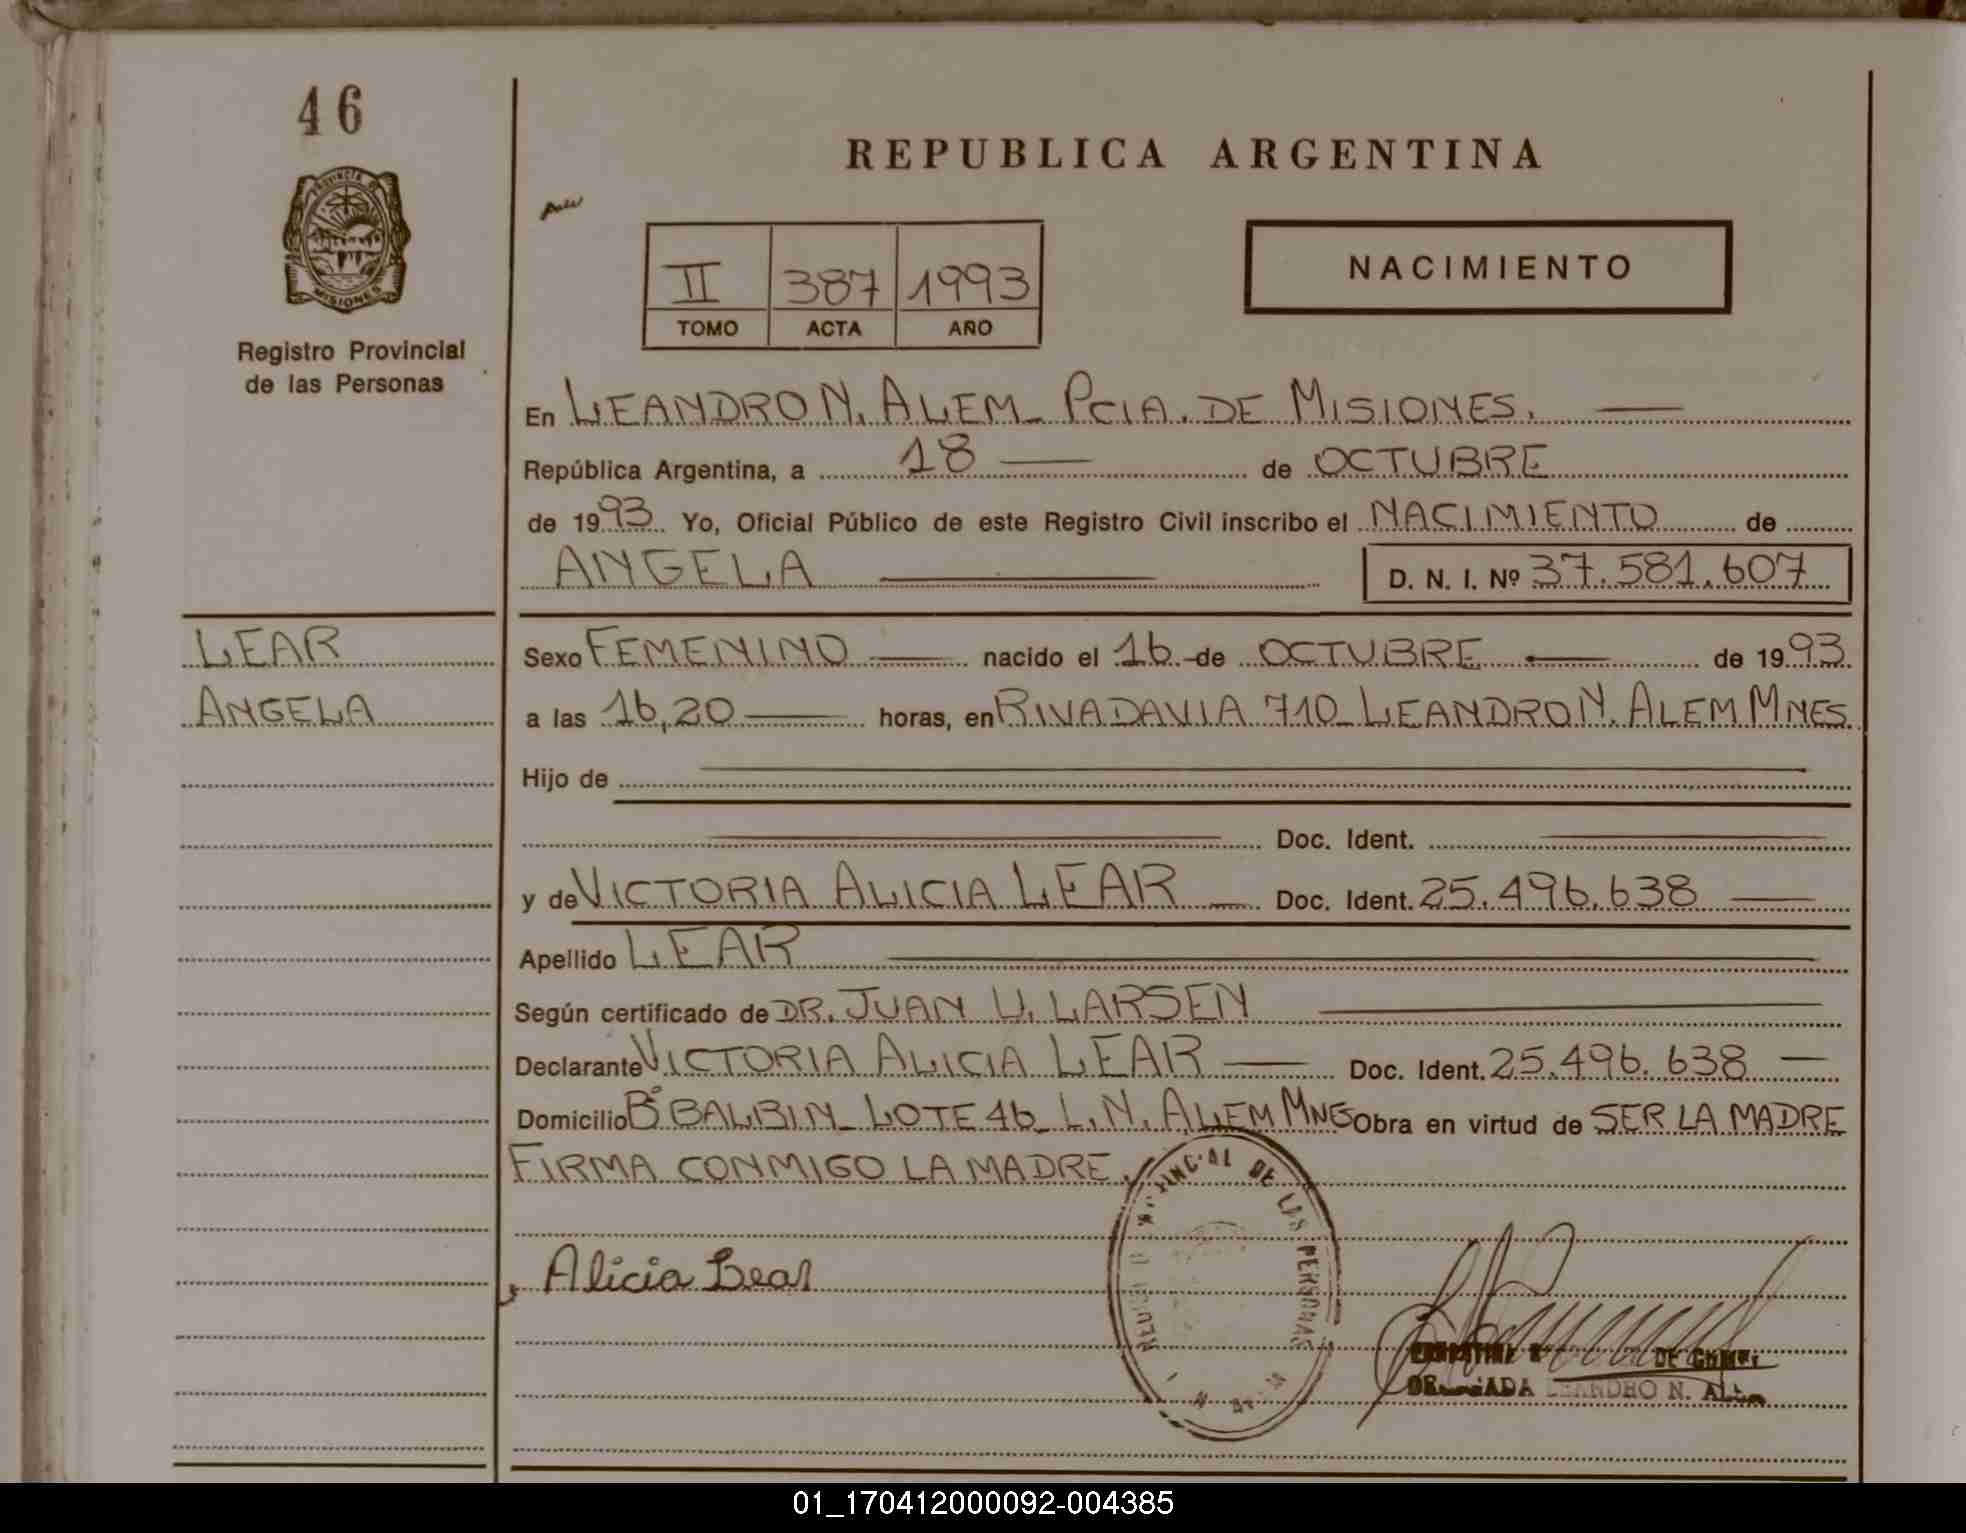 46
PROVINCIA DE
MISIONES
Registro Provincial
de las Personas
REPUBLICA ARGENTINA
II 387 1993
TOMO ACTA AÑO
NACIMIENTO
En LEANDRO N. ALEM_ PCIA. DE MISIONES.
República Argentina, a 18 de OCTUBRE
de 1993 Yo, Oficial Público de este Registro Civil inscribo el NACIMIENTO de
ANGELA D. N. I. Nº 37.581.607
LEAR
ANGELA
Sexo FEMENINO nacido el 16 de OCTUBRE de 1993
a las 16,20 horas, en RIVADAVIA 710_ LEANDRO N. ALEM MNES
Hijo de
Doc. Ident.
y de VICTORIA ALICIA LEAR Doc. Ident. 25.496.638
Apellido LEAR
Según certificado de DR. JUAN U. LARSEN
Declarante VICTORIA ALICIA LEAR Doc. Ident. 25.496.638
Domicilio Bº BALBIN_ LOTE 46_ L. N. ALEM MNES Obra en virtud de SER LA MADRE
FIRMA CONMIGO LA MADRE.
DE LAS PERSONAS
Alicia Lear
DE
LEANDRO N.
01_170412000092-004385